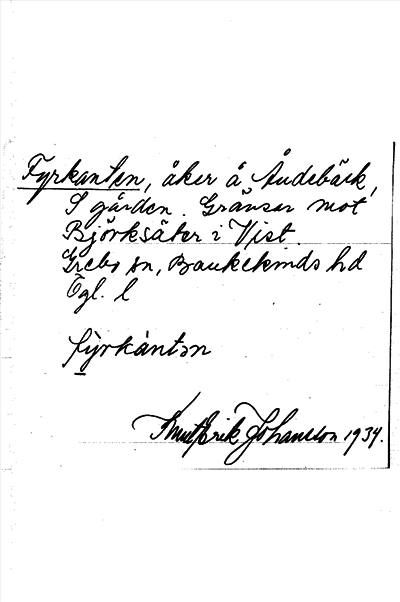 Fyrkanten, åker å Åudebäck,
S gården. Gränsar mot
Björksäter i Vist.
Grebo sn, Bankekinds hd
Ögl. l
fỳ̱rkàntən
Knut Erik Johansson 1934.